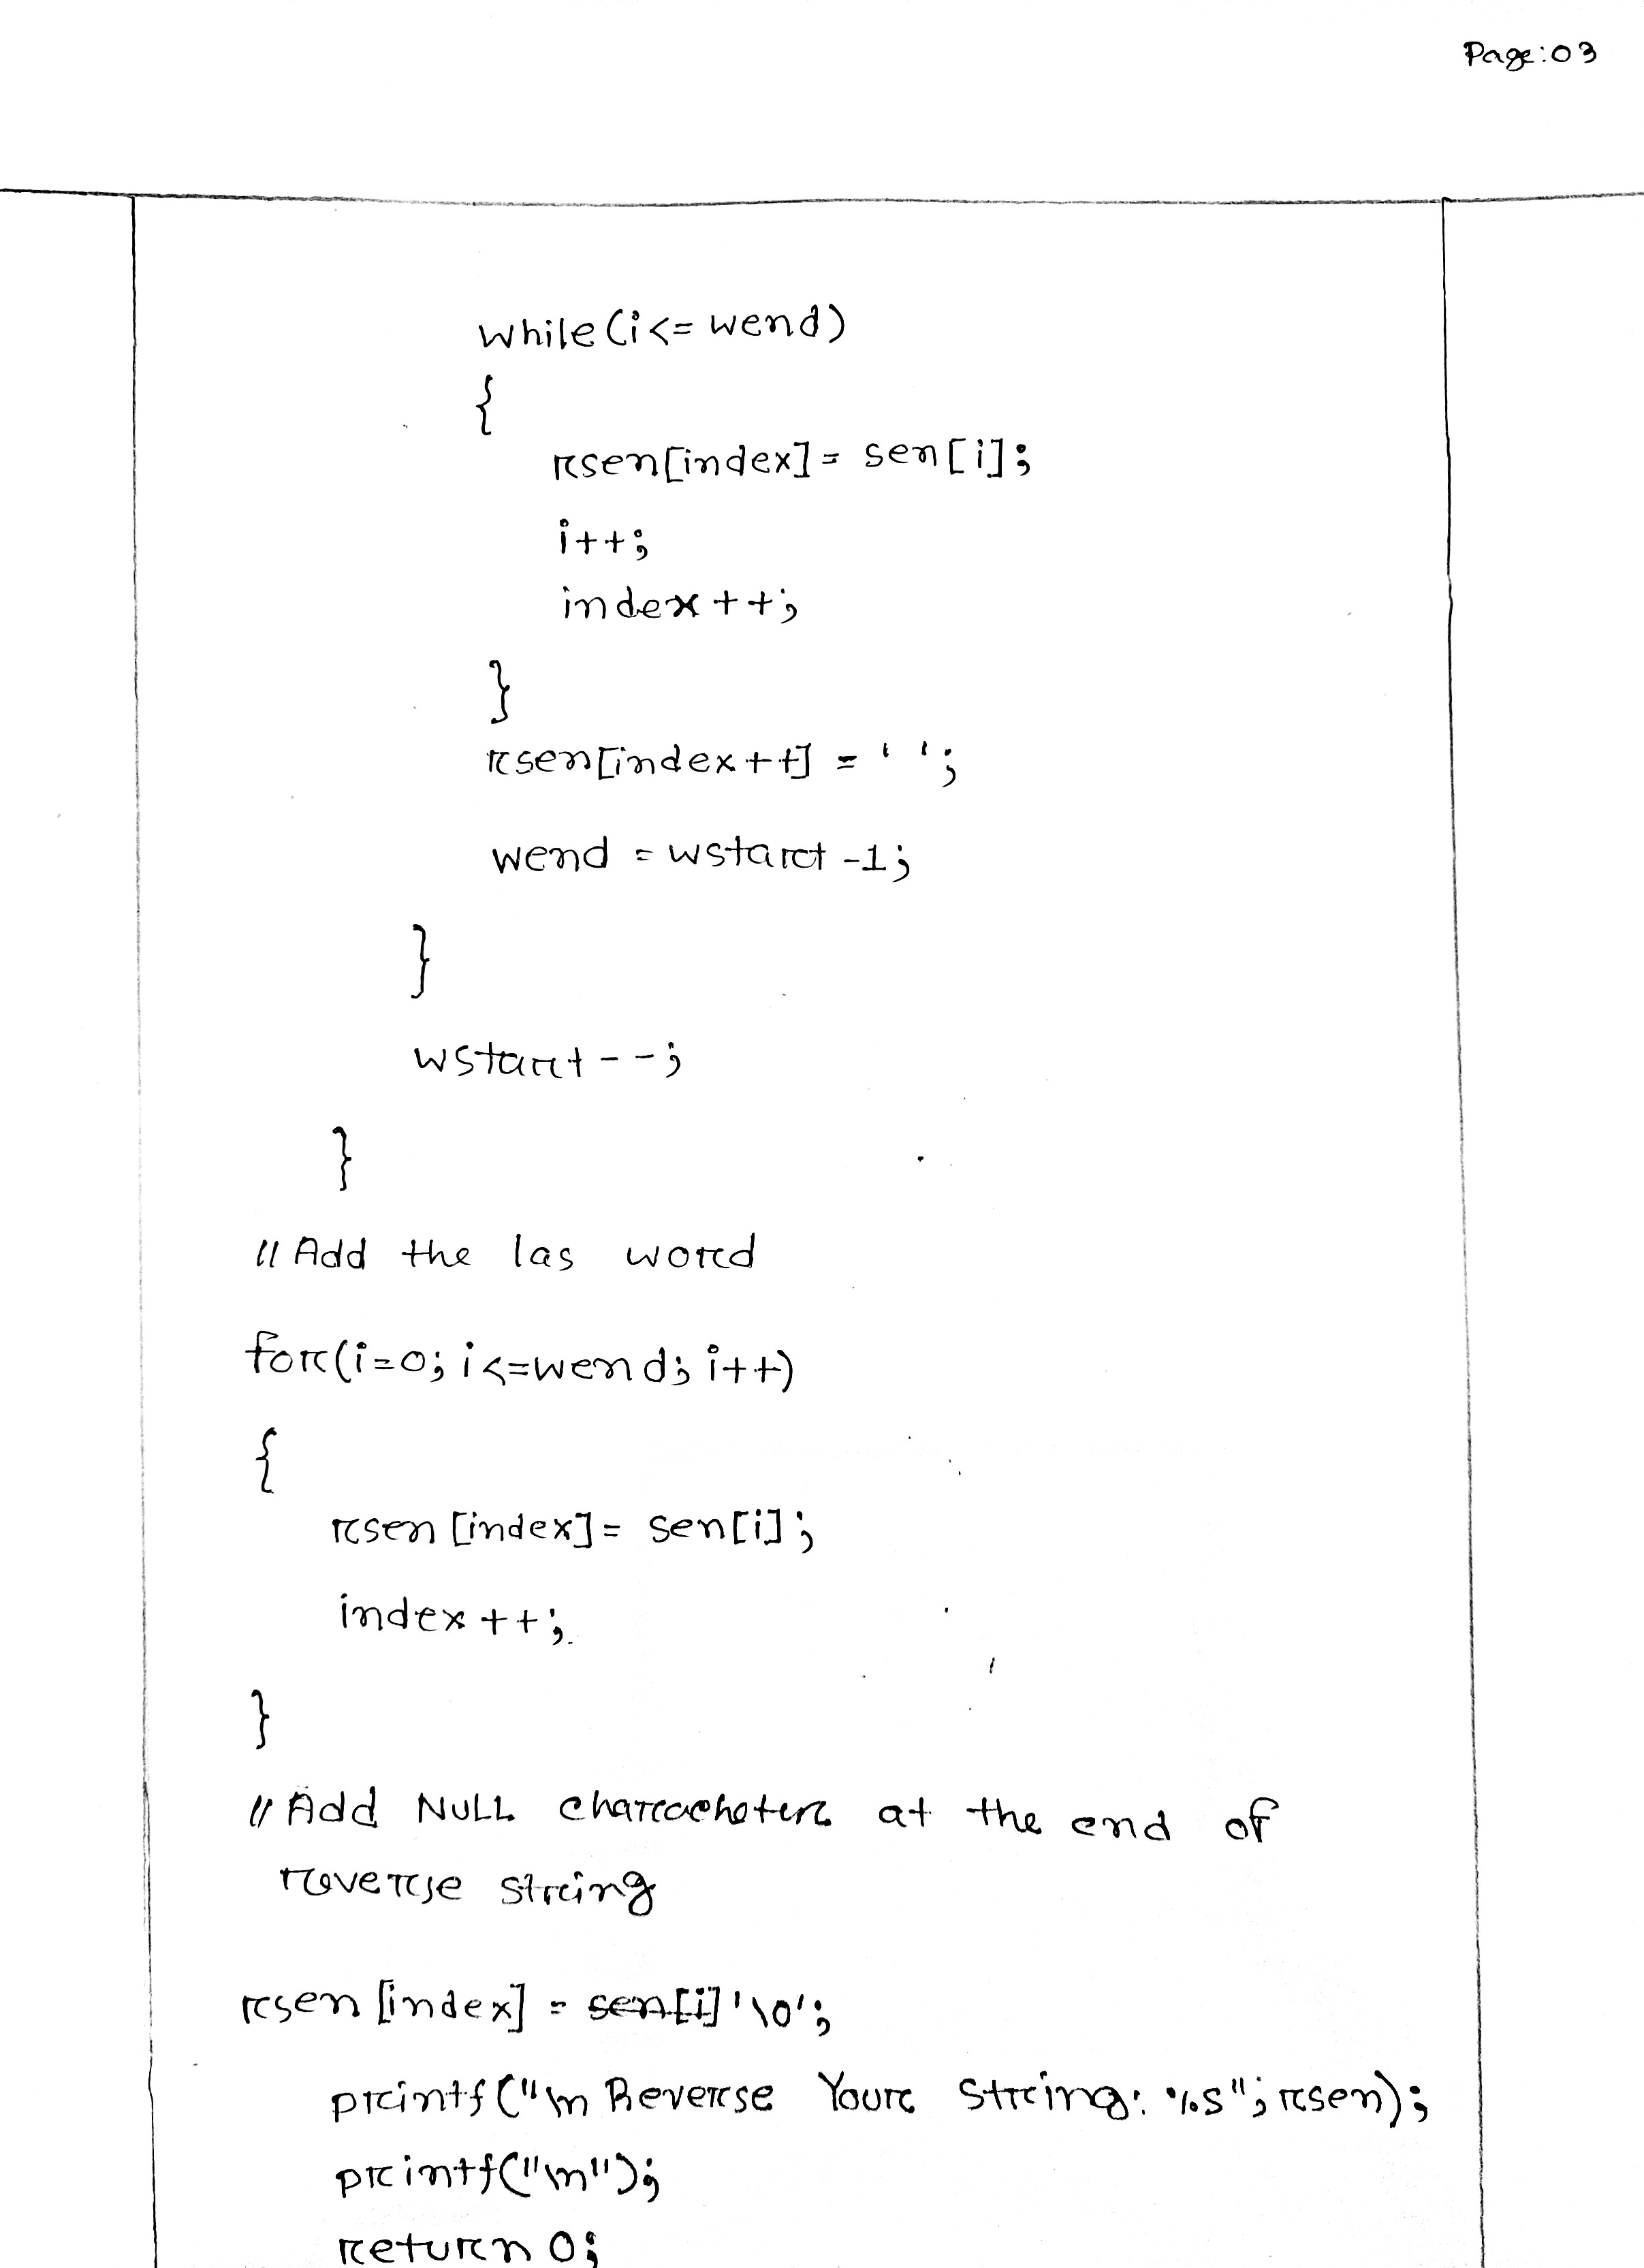 Page:03
while(i<= wend)
{
rsen[index]= sen[i];
i++;
index++;
}
rsen[index++] = ' ';
wend = wstart -1;
}
wstart--;
}
// Add the las word
for(i=0; i<=wend; i++)
{
rsen [index]= sen[i];
index++;
}
// Add NULL at the end of
reverse string
rsen [index] = sen[i] '\0';
printf("\n Reverse Your String: %s"; rsen);
printf("\n");
return 0;